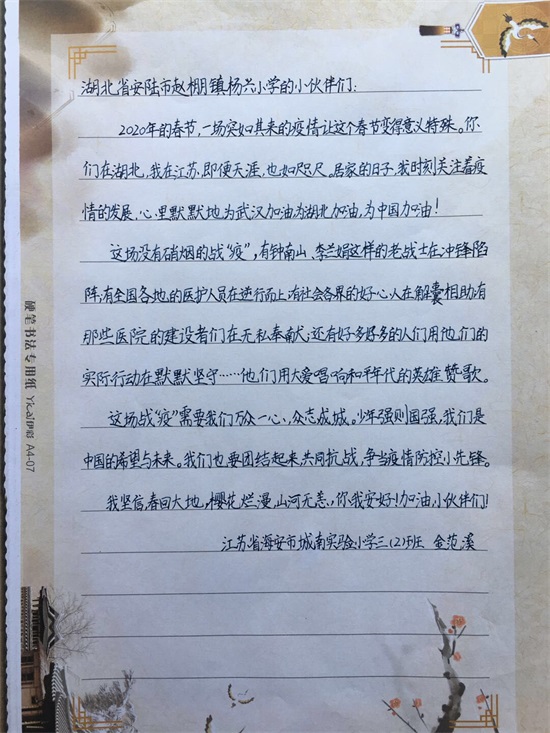 湖北省安陆市赵棚镇杨兴小学的小伙伴们：
2020年的春节，一场突如其来的疫情让这个春节变得意义特殊。你
们在湖北，我在江苏，即便天涯，也如咫尺。居家的日子，我时刻关注着疫
情的发展，心里默默地为武汉加油，为湖北加油，为中国加油！
这场没有硝烟的战“疫”，有钟南山、李兰娟这样的老战士在冲锋陷
阵；有全国各地的医护人员在逆行而上；有社会各界的好心人在解囊相助；有
那些医院的建设者们在无私奉献；还有好多好多的人们用他们的
实际行动在默默坚守……他们用大爱唱响和平年代的英雄赞歌。
这场战“疫”需要我们万众一心，众志成城。少年强则国强，我们是
中国的希望与未来。我们也要团结起来共同抗战，争当疫情防控小先锋。
我坚信，春回大地，樱花烂漫，山河无恙，你我安好！加油，小伙伴们！
江苏省海安市城南实验小学三（2）班 金范溪
硬笔书法专用纸 Yicai伊彩 A4-07